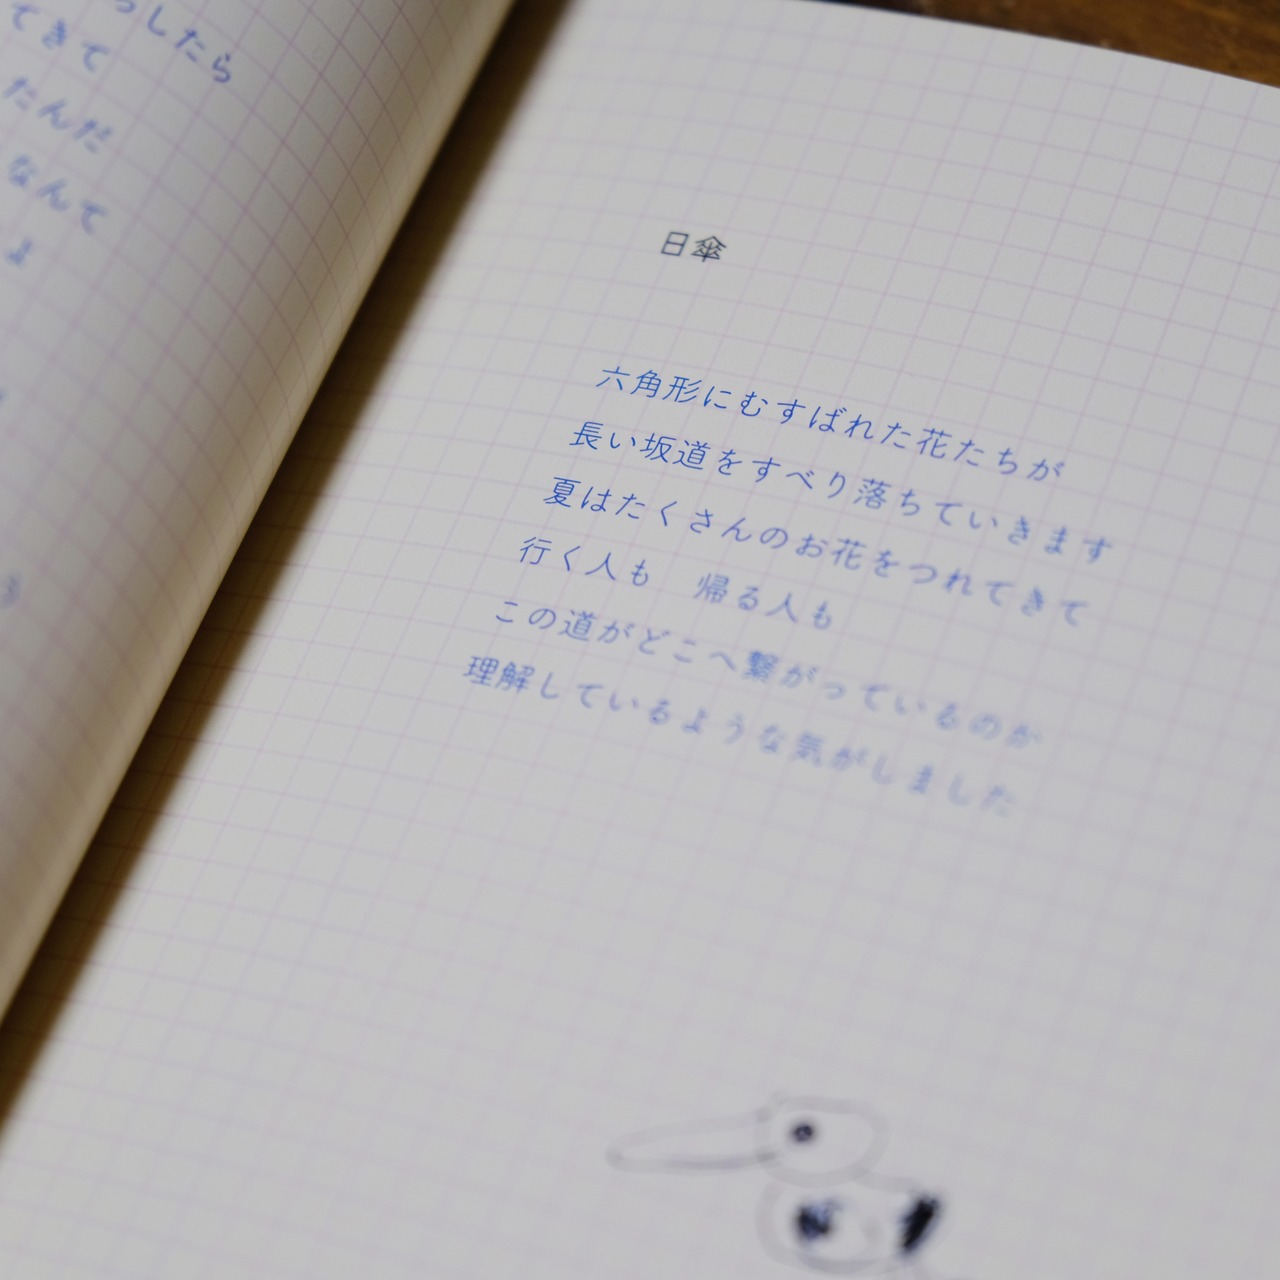 したら
てきて
たんだ
なんて
よ
う
日傘
六角形にむすばれた花たちが
長い坂道をすべり落ちていきます
夏はたくさんのお花をつれてきて
行く人も　帰る人も
この道がどこへ繋がっているのか
理解しているような気がしました